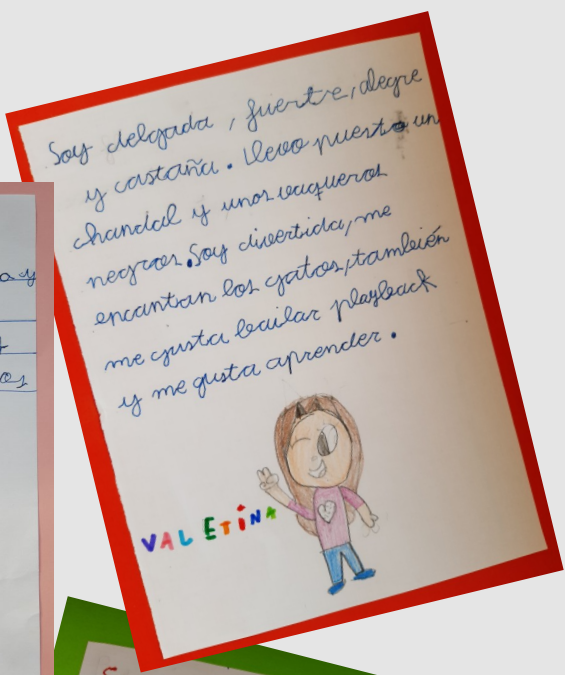 Soy delgada, fuerte, alegre
y castaña. Llevo puesto un
chandal y unos vaqueros
negros. Soy divertida, me
encantan los gatos, también
me gusta bailar playback
y me gusta aprender.
VALETINA